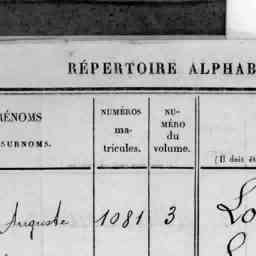 RÉPERTOIRE ALPHAB
RÉNOMS
SURNOMS.
NUMÉROS
ma-
tricules.
NU-
MÉRO
du
volume.
(Il doit êt
Auguste 1081 3 Lo